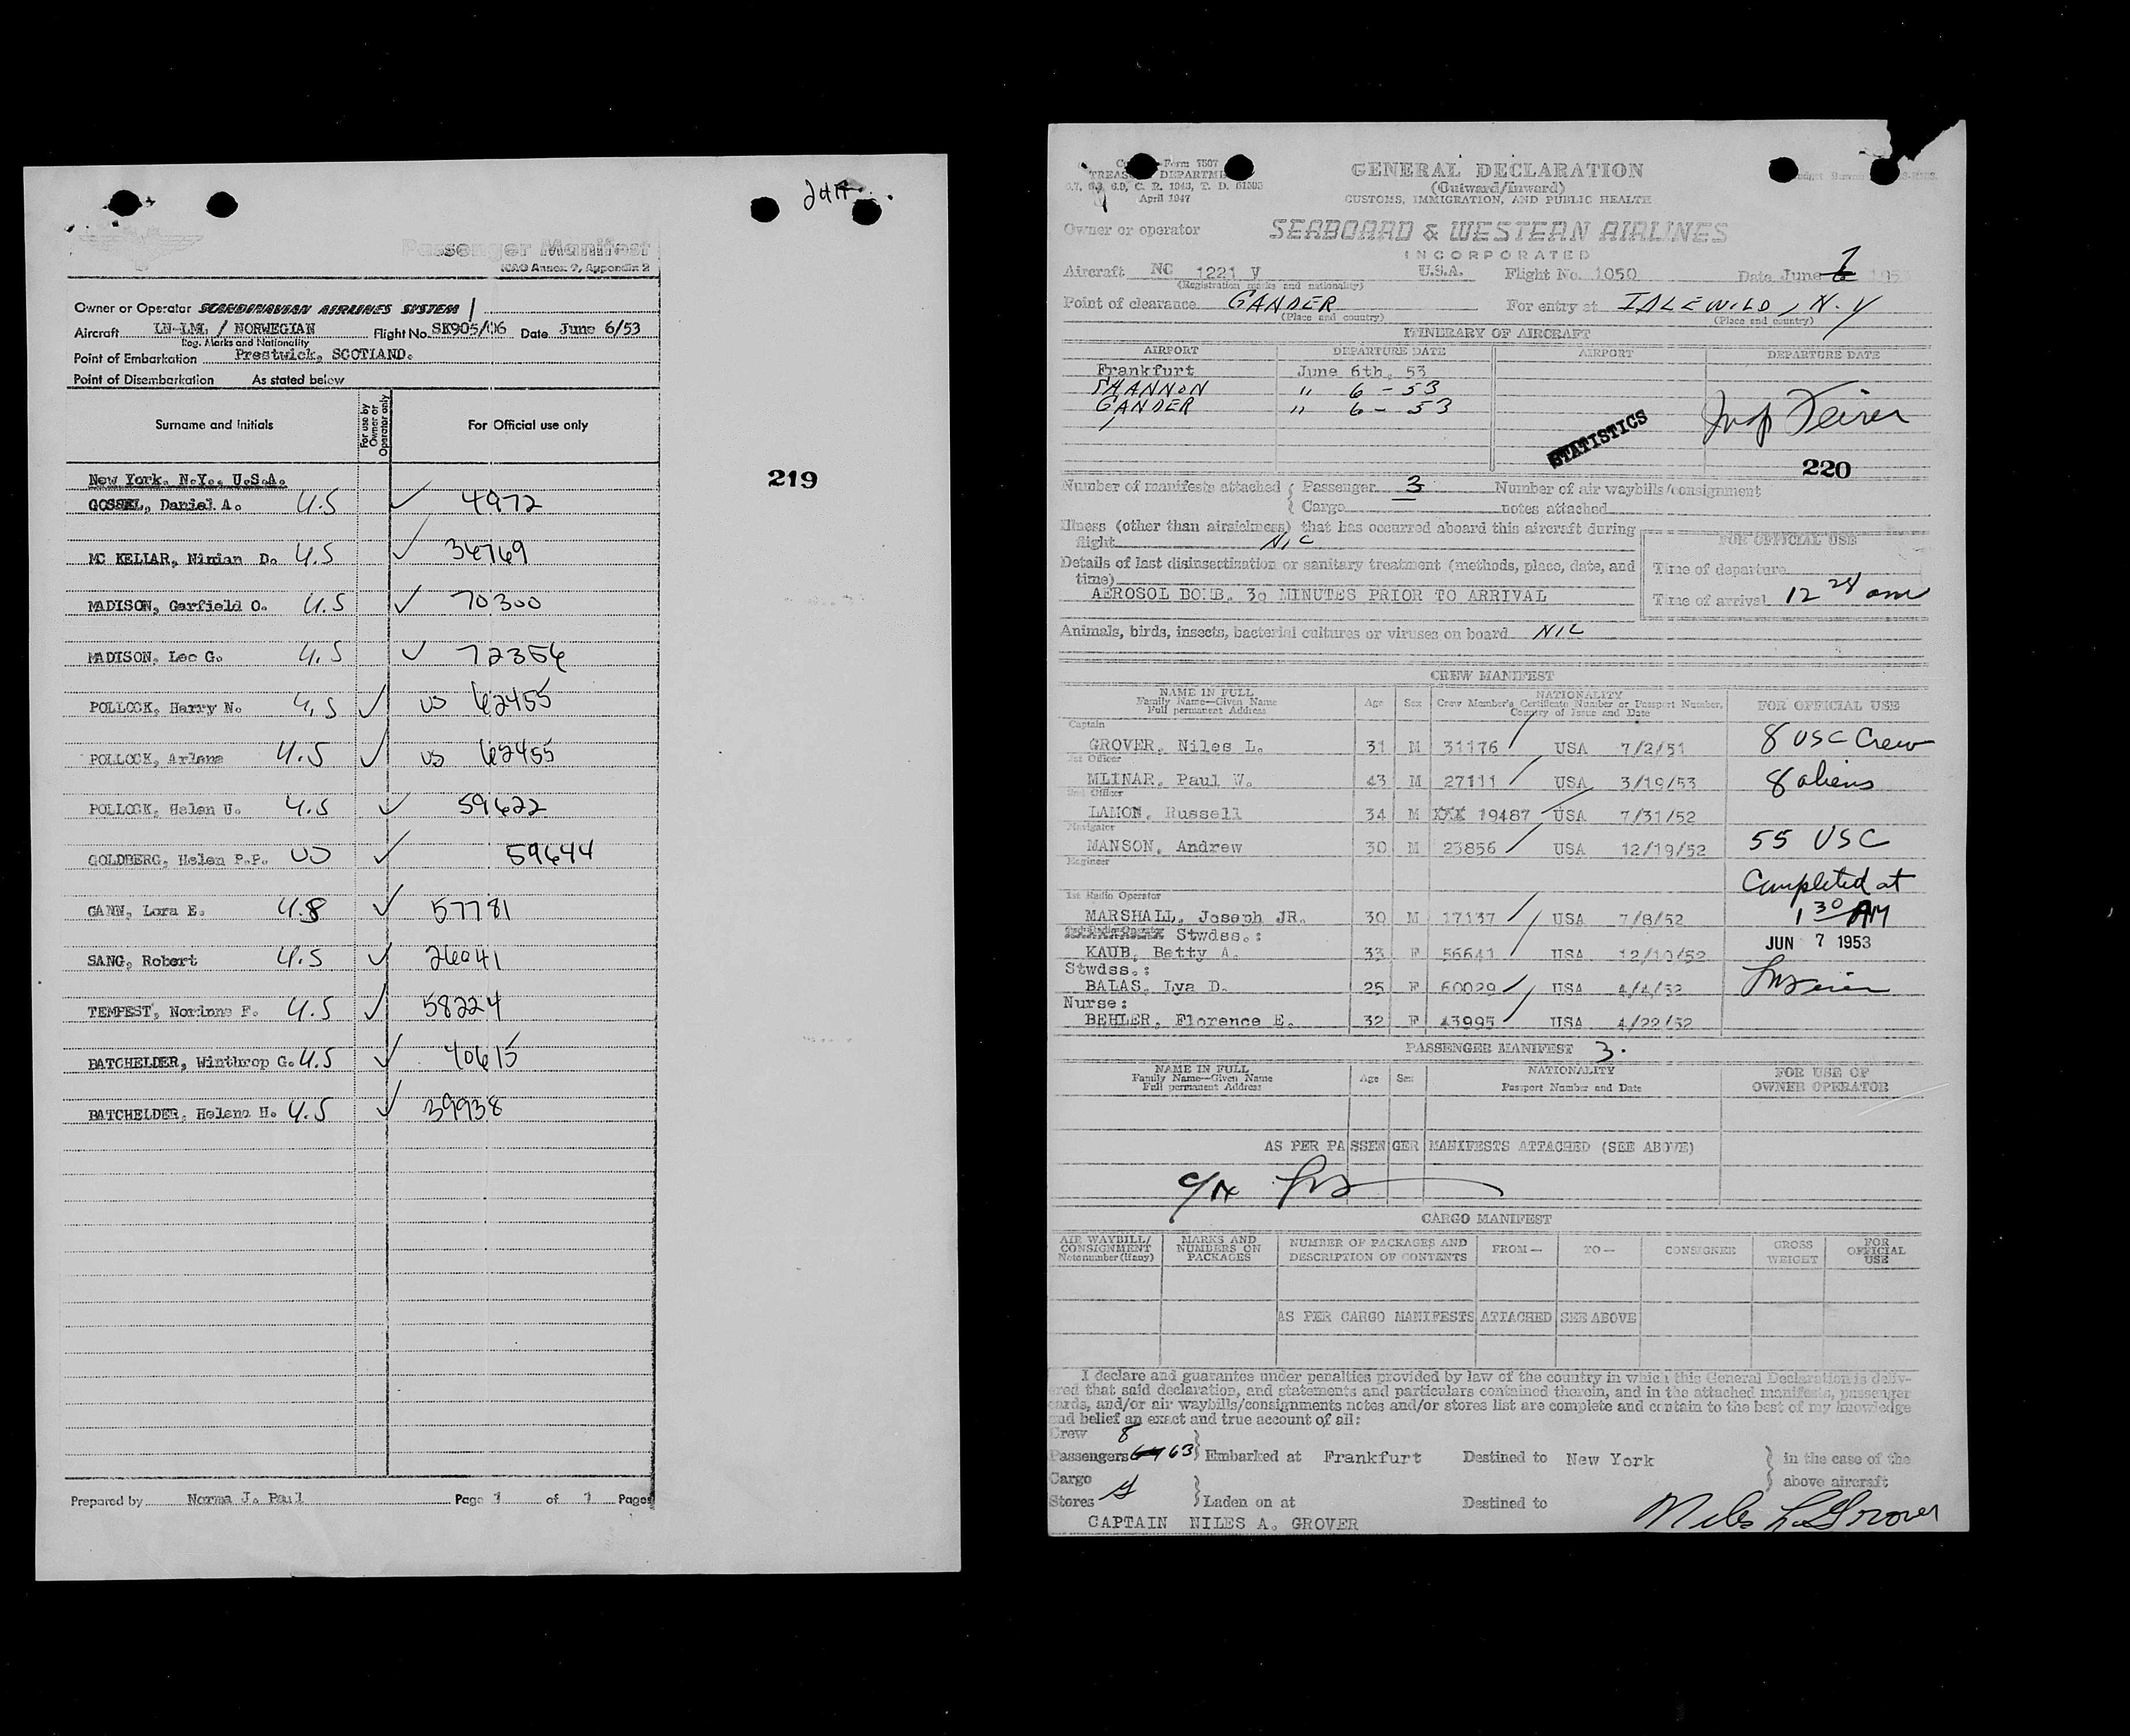 Passenger Manifest
ICAO Annex 9, Appendix 2
Owner or Operator SCANDINAVIAN AIRLINES SYSTEM
Aircraft LN-LMI / NORWEGIAN Flight No. SK905/06 Date June 6/53
Reg. Marks and Nationality
Point of Embarkation Prestwick, SCOTLAND.
Point of Disembarkation As stated below
Surname and Initials For use by Owner or Operator only For Official use only
219
New York, N.Y., U.S.A.
GOSSEL, Daniel A. U.S 4972
MC KELLAR, Ninian D. U.S 34769
MADISON, Garfield O. U.S 70300
MADISON, Lee G. U.S 72356
POLLOCK, Harry N. U.S US 62455
POLLOCK, Arlene U.S US 62455
POLLOCK, Helen U. U.S 59622
GOLDBERG, Helen P.P. US 59644
GANN, Lora E. U.S 57781
SANG, Robert U.S 26041
TEMPEST, Norinne F. U.S 58224
BATCHELDER, Winthrop G. U.S 40615
BATCHELDER, Helena H. U.S 39938
Prepared by Norma J. Paul Page 1 of 1 Pages
Form 7507
TREASURY DEPARTMENT
April 1947
GENERAL DECLARATION
(Outward/Inward)
CUSTOMS, IMMIGRATION, AND PUBLIC HEALTH
Owner or operator SEABOARD & WESTERN AIRLINES
INCORPORATED
Aircraft NC 1221 V U.S.A. Flight No. 1050 Date June 6 7 195
(Registration marks and nationality)
Point of clearance GANDER For entry at IDLEWILD, N.Y
(Place and country) (Place and country)
ITINERARY OF AIRCRAFT
AIRPORT DEPARTURE DATE AIRPORT DEPARTURE DATE
Frankfurt June 6th, 53
SHANNON " 6 - 53
GANDER " 6 - 53
STATISTICS
220
Number of manifests attached { Passenger 3 Number of air waybills/consignment
{ Cargo notes attached
Illness (other than airsickness) that has occurred aboard this aircraft during
flight NIL
FOR OFFICIAL USE
Details of last disinsectization or sanitary treatment (methods, place, date, and
time)
AEROSOL BOMB. 30 MINUTES PRIOR TO ARRIVAL
Time of departure
Time of arrival 12 28 am
Animals, birds, insects, bacterial cultures or viruses on board NIL
CREW MANIFEST
NAME IN FULL
Family Name—Given Name
Full permanent Address
Age Sex
NATIONALITY
Crew Member's Certificate Number or Passport Number,
Country of Issue and Date
FOR OFFICIAL USE
Captain
GROVER, Niles L. 31 M 31176 USA 7/2/51 8 USC Crew
1st Officer
MLINAR, Paul W. 43 M 27111 USA 3/19/53 8 aliens
2nd Officer
LAMON, Russell 34 M XXX 19487 USA 7/31/52
Navigator
MANSON, Andrew 30 M 23856 USA 12/19/52 55 USC
Engineer
Completed at
1st Radio Operator
MARSHALL, Joseph JR. 30 M 17137 USA 7/8/52 1 30 AM
Stwdss.:
KAUB, Betty A. 33 F 56641 USA 12/10/52 JUN 7 1953
Stwdss.:
BALAS, Lya D. 25 F 60029 USA 4/4/52
Nurse:
BEHLER, Florence E. 32 F 43995 USA 4/22/52
PASSENGER MANIFEST 3.
NAME IN FULL
Family Name—Given Name
Full permanent Address
Age Sex
NATIONALITY
Passport Number and Date
FOR USE OF
OWNER OPERATOR
AS PER PASSENGER MANIFESTS ATTACHED (SEE ABOVE)
CARGO MANIFEST
AIR WAYBILL/
CONSIGNMENT
Note number (if any)
MARKS AND
NUMBERS ON
PACKAGES
NUMBER OF PACKAGES AND
DESCRIPTION OF CONTENTS
FROM— TO— CONSIGNEE
GROSS
WEIGHT
FOR
OFFICIAL
USE
AS PER CARGO MANIFESTS ATTACHED SEE ABOVE
I declare and guarantee under penalties provided by law of the country in which this General Declaration is deliv-
ered that said declaration, and statements and particulars contained therein, and in the attached manifests, passenger
cards, and/or air waybills/consignments notes and/or stores list are complete and contain to the best of my knowledge
and belief an exact and true account of all:
Crew 8
Passengers 64 63 } Embarked at Frankfurt Destined to New York } in the case of the
Cargo above aircraft
Stores } Laden on at Destined to
CAPTAIN NILES A. GROVER
Niles L. Grover